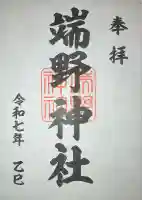 奉拝
端野神社
令和七年 乙巳